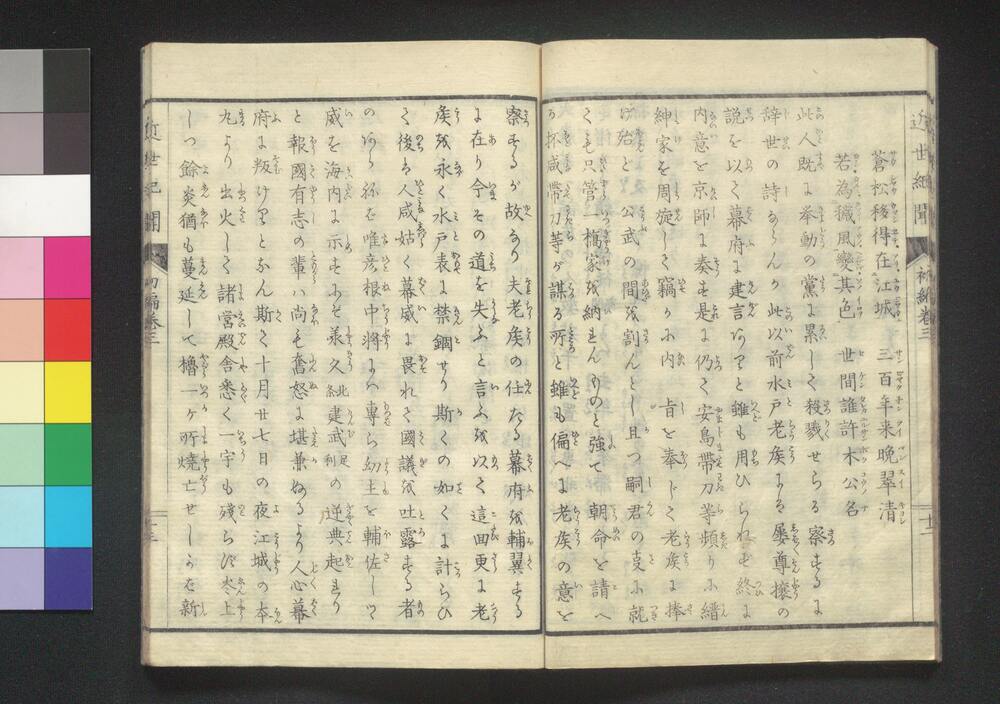 近世紀聞 初編巻三 十二
蒼松移得在江城 三百年来晩翠清
若為穢風變其色 世間誰許木公名
此人既に挙動の黨に累して殺戮せらる察するに
辞世の詩ならんか此以前水戸老矦には屡尊攘の
説を以て幕府に建言ありと雖も用ひられず終に
内意を京師に奏す是に仍て安島帯刀等頻りに縉
紳家を周旋して竊かに内旨を奉じて老矦に捧
げ殆ど公武の間を割んとし且つ嗣君の支に就
ても只管一橋家を納れんものと強て朝命を請へ
る抔咸帯刀等が謀る所と雖も偏へに老矦の意を
察するが故なり夫老矦の仕たる幕府を輔翼する
に在り今その道を失ふと言ふを以て這回更に老
矦を永く水戸表に禁錮せり斯くの如くに計らひ
て後る人咸姑く幕威に畏れて國議を吐露する者
のあら祢ば唯彦根中将には専ら幼主を輔佐しつゝ
威を海内に示すにぞ承久北条建武足利の逆典起れり
と報國有志の輩ハ尚も奮怒に堪兼ぬるより人心幕
府に叛けりとなん斯て十月廿七日の夜江城の本
丸より出火して諸宮殿舎悉く一宇も残らず炎上
しつ餘炎猶も蔓延して櫓一ケ所焼亡せしかば新
近世紀聞 初編巻三 十三